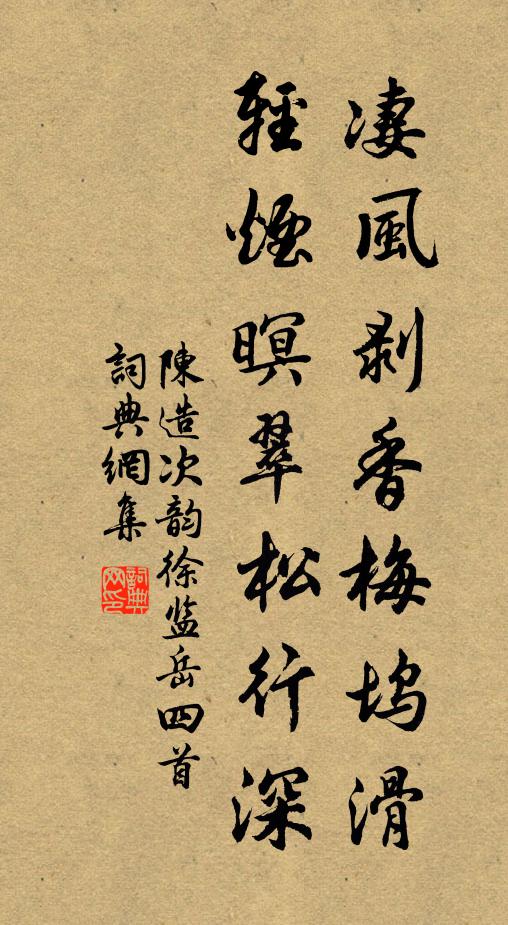 淒風剝香梅塢滑
輕煙暝翠松行深
陳造次韵徐监岳四首
詞典網集
詞典网印